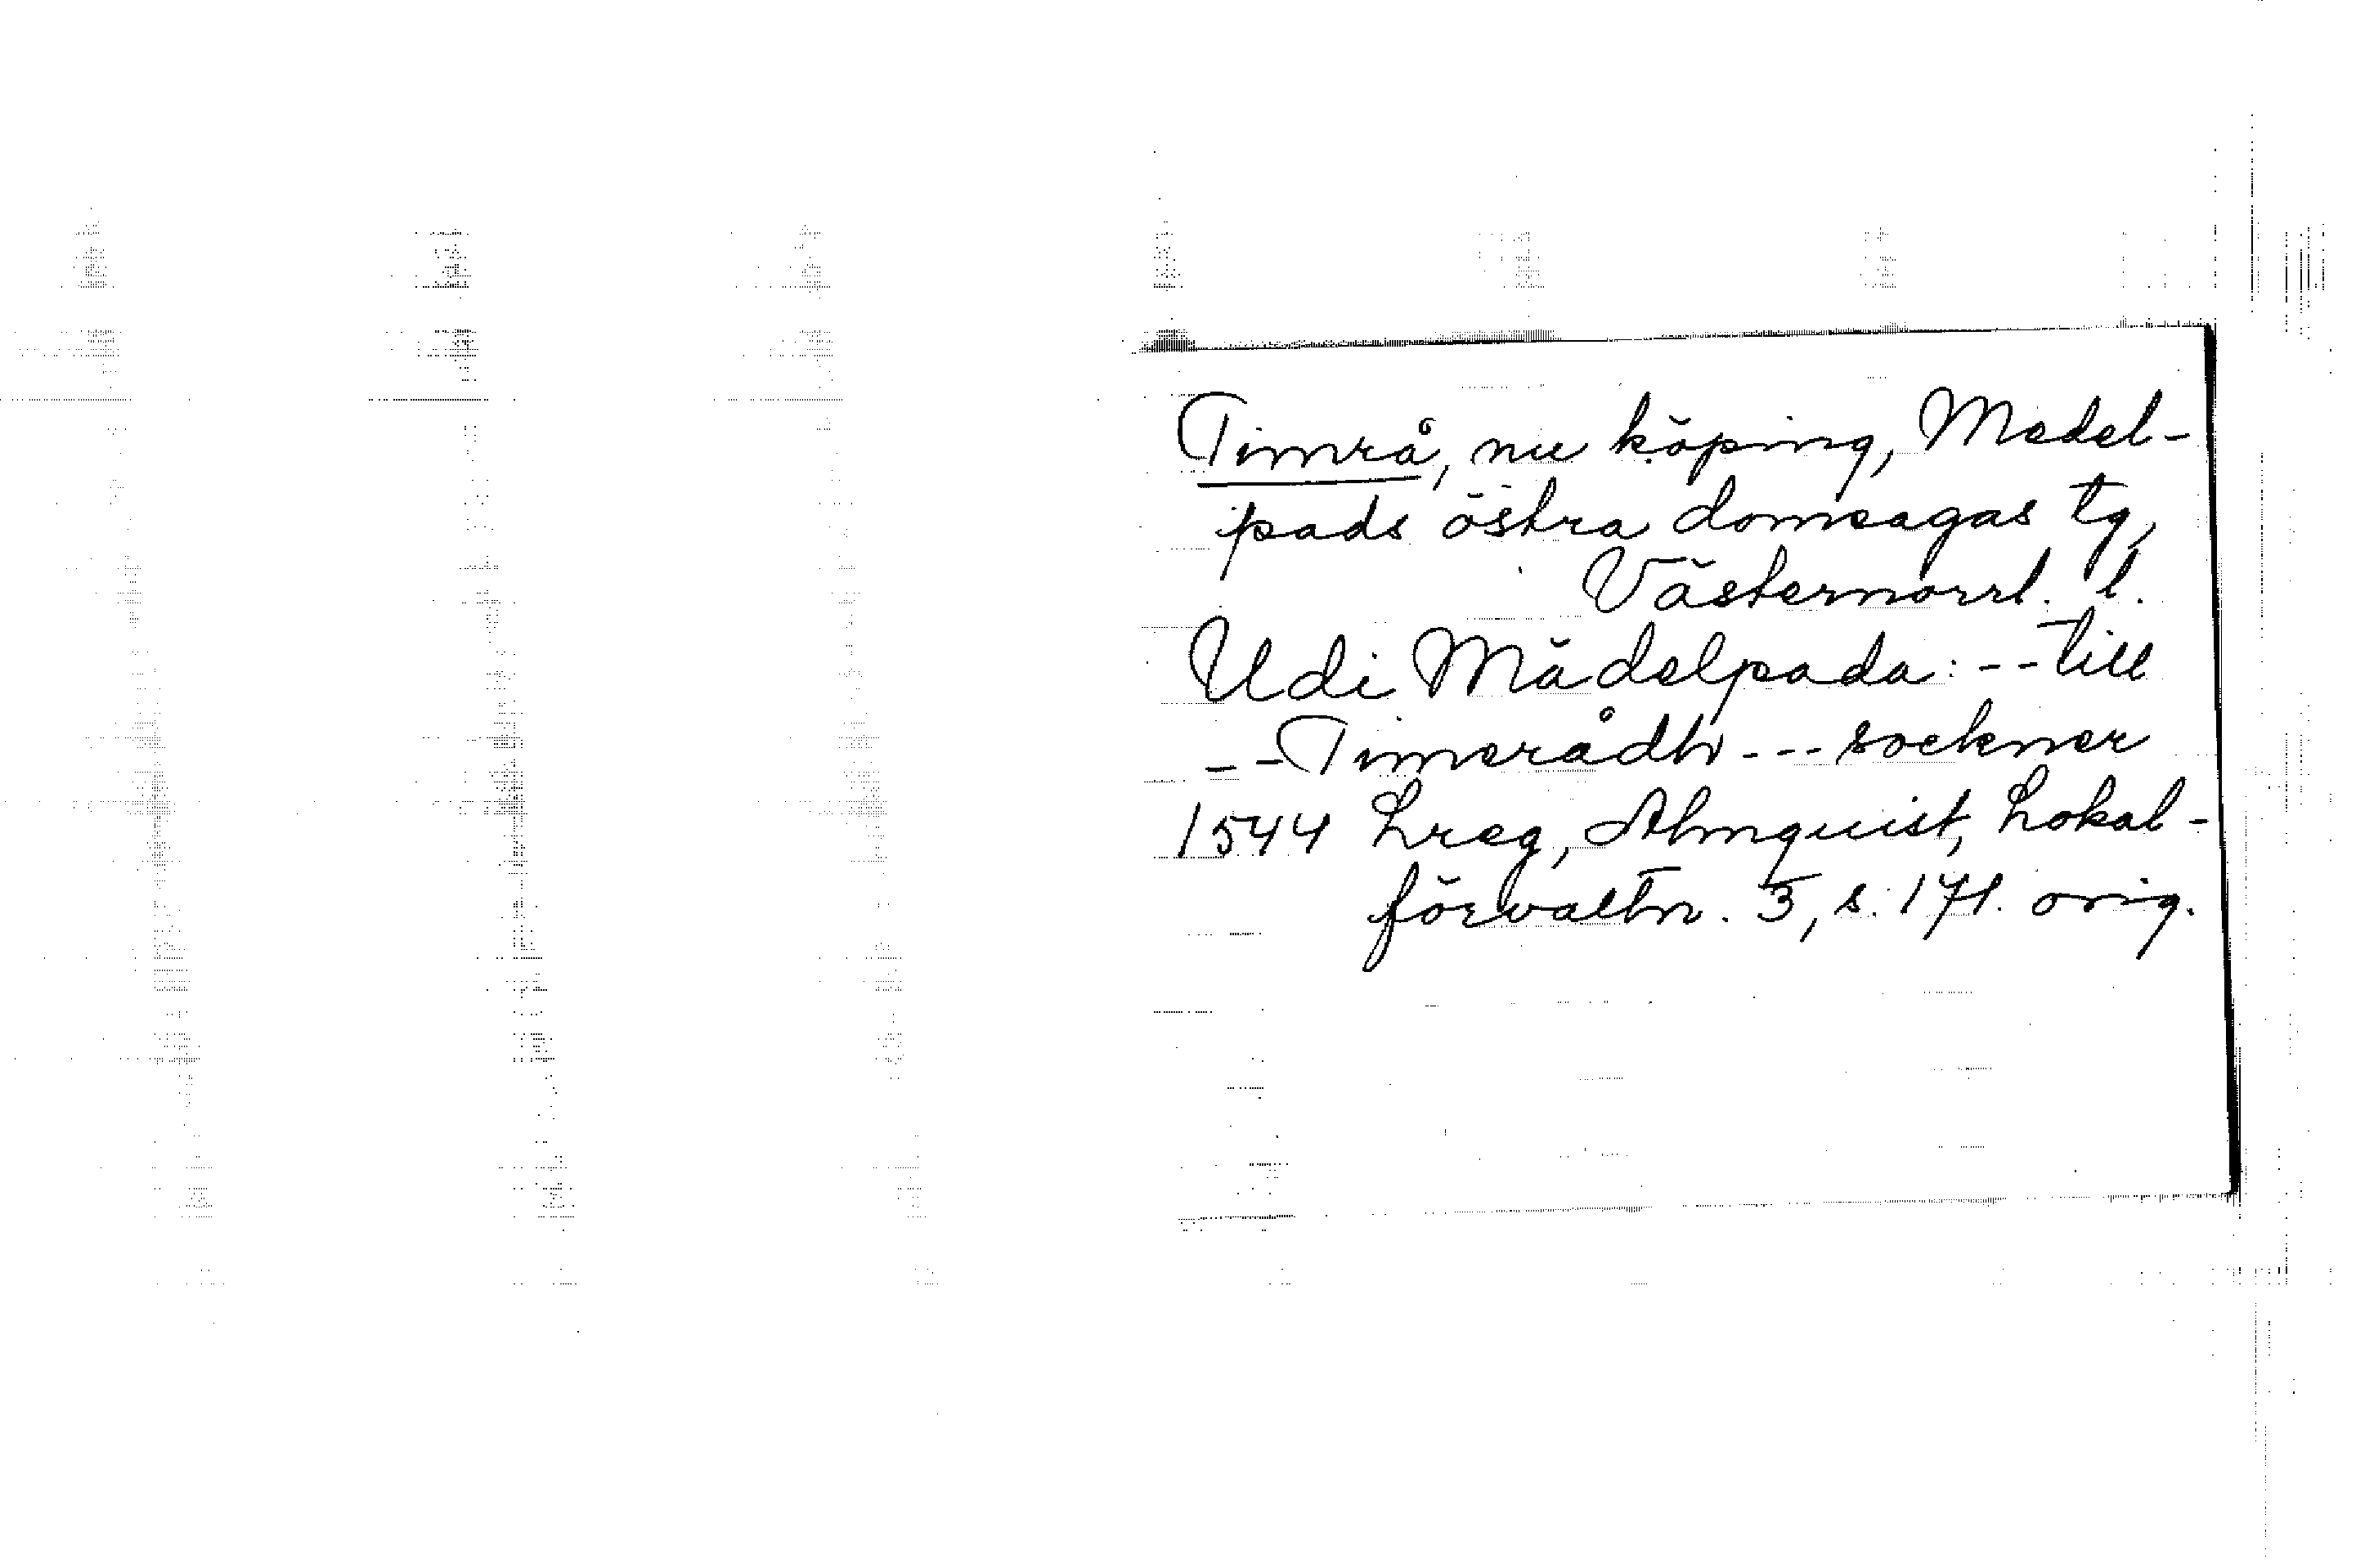 Timrå, nu köping, Medel-
pads östra domsagas tg,
Västernorrl. l.
Udi Mädelpada: -- till
-- Timerådh --- sockner
1544 Lreg, Almquist, Lokal-
förvaltn. 3, s. 171. orig.